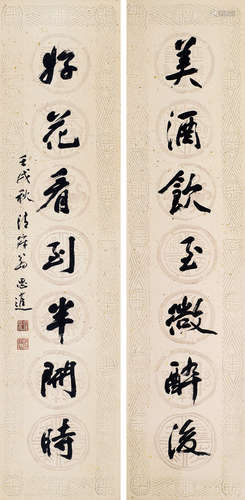 美酒飲至微醉後
好花看到半開時
壬戌秋